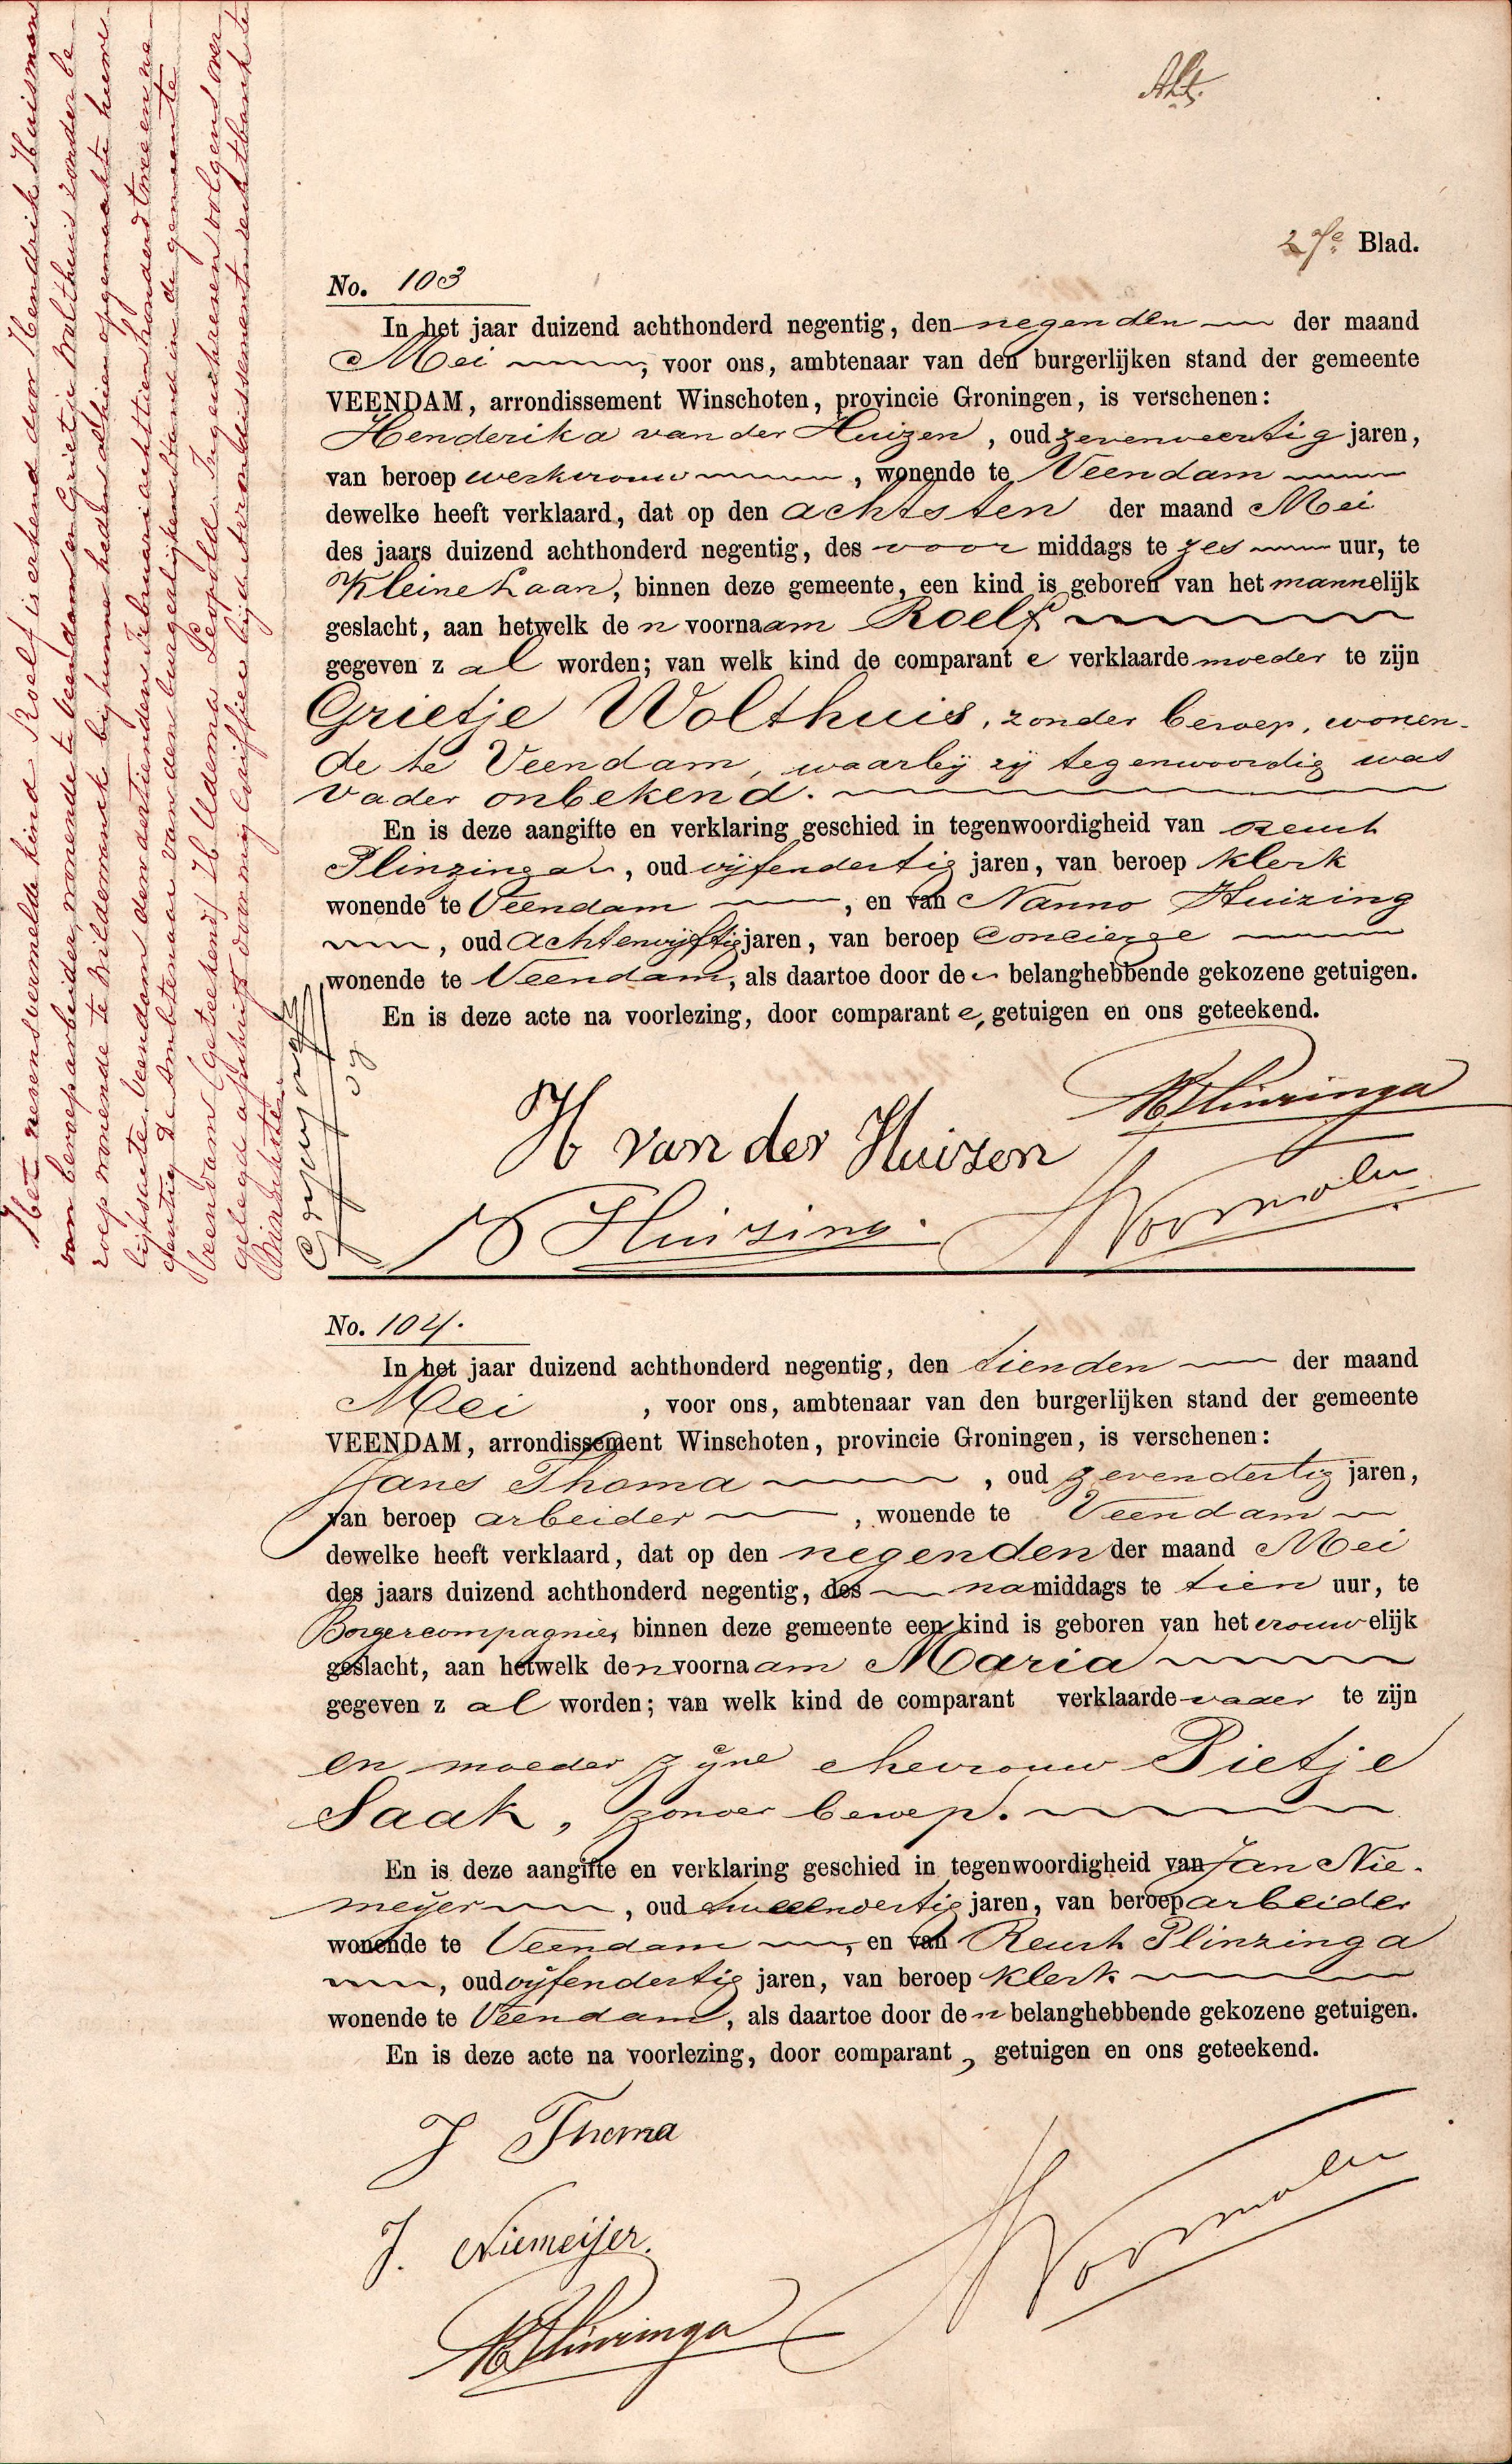 27e Blad.
No. 103
In het jaar duizend achthonderd negentig, den negenden der maand
Mei, voor ons, ambtenaar van den burgerlijken stand der gemeente
VEENDAM, arrondissement Winschoten, provincie Groningen, is verschenen:
Henderika van der Huizen, oud zevenveertig jaren,
van beroep werkvrouw, wonende te Veendam
dewelke heeft verklaard, dat op den achtsten der maand Mei
des jaars duizend achthonderd negentig, des voor middags te zes uur, te
Kleine Laan, binnen deze gemeente, een kind is geboren van het mannelijk
geslacht, aan hetwelk de n voornaam Roelf
gegeven z al worden; van welk kind de comparant e verklaarde moeder te zijn
Grietje Wolthuis, zonder beroep, wonen-
de te Veendam, waarbij zij tegenwoordig was
Vader onbekend.
En is deze aangifte en verklaring geschied in tegenwoordigheid van
Plinzinga, oud vijfendertig jaren, van beroep klerk
wonende te Veendam, en van Nanno Huizing
, oud achtenvijftig jaren, van beroep Concierge
wonende te Veendam, als daartoe door de belanghebbende gekozene getuigen.
En is deze acte na voorlezing, door comparant e, getuigen en ons geteekend.
H van der Huizen
Plinzinga
Huizing.
Het nevensvermelde kind Roelf is erkend door Hendrik Huisman
van beroep arbeider, wonende te Veendam en Grietje Wolthuis zonder be-
roep wonende te Wildervank bij hunne heden alhier opgemaakte huwe-
lijksacte. Veendam den dertienden Februari achttienhonderd twee en ne-
gentig. De Ambtenaar van den burgerlijken Stand in de gemeente
Veendam (geteekend) Ib. Udema Leopold. Ingeschreven volgens over-
gelegd afschrift door mij Griffier bij de Arrondissements-rechtbank te
Winschoten.
No. 104.
In het jaar duizend achthonderd negentig, den tienden der maand
Mei, voor ons, ambtenaar van den burgerlijken stand der gemeente
VEENDAM, arrondissement Winschoten, provincie Groningen, is verschenen:
Jans Thoma, oud zevendertig jaren,
van beroep arbeider, wonende te Veendam
dewelke heeft verklaard, dat op den negenden der maand Mei
des jaars duizend achthonderd negentig, des namiddags te tien uur, te
Borgercompagnie, binnen deze gemeente een kind is geboren van het vrouwelijk
geslacht, aan hetwelk den voornaam Maria
gegeven z al worden; van welk kind de comparant verklaarde vader te zijn
en moeder zijne ehevrouw Pietje
Saak, zonder beroep.
En is deze aangifte en verklaring geschied in tegenwoordigheid van Jan Nie-
meijer, oud jaren, van beroep arbeider
wonende te Veendam, en van Plinzinga
, oud vijfendertig jaren, van beroep klerk
wonende te Veendam, als daartoe door de n belanghebbende gekozene getuigen.
En is deze acte na voorlezing, door comparant, getuigen en ons geteekend.
J Thoma
J. Niemeijer.
Plinzinga